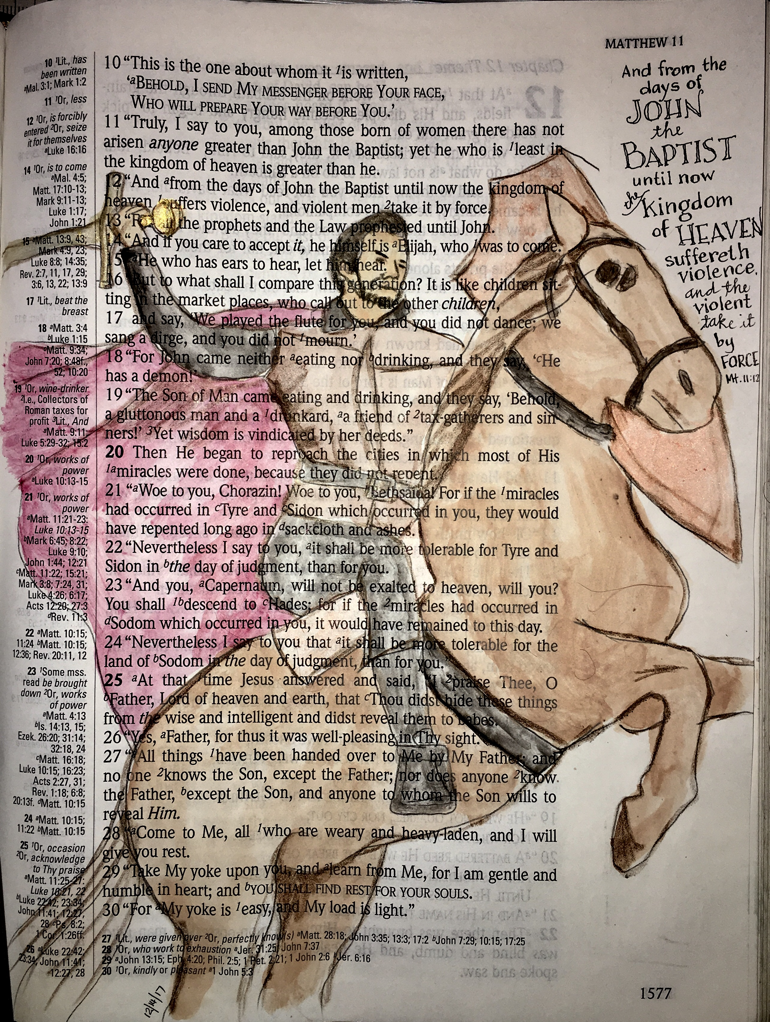 MATTHEW 11
10 ¹Lit., has
been written
ᵃMal. 3:1; Mark 1:2
11 ¹Or, less
12 ¹Or, is forcibly
entered ²Or, seize
it for themselves
ᵃLuke 16:16
14 ¹Or, is to come
ᵃMal. 4:5;
Matt. 17:10-13;
Mark 9:11-13;
Luke 1:17;
John 1:21
15 ᵃMatt. 13:9, 43;
Mark 4:9, 23;
Luke 8:8; 14:35;
Rev. 2:7, 11, 17, 29;
3:6, 13, 22; 13:9
17 ¹Lit., beat the
breast
18 ᵃMatt. 3:4
ᵇLuke 1:15
ᶜMatt. 9:34;
John 7:20; 8:48f.,
52; 10:20
19 ¹Or, wine-drinker
²I.e., Collectors of
Roman taxes for
profit ³Lit., And
ᵃMatt. 9:11;
Luke 5:29-32; 15:2
20 ¹Or, works of
power
ᵃLuke 10:13-15
21 ¹Or, works of
power
ᵃMatt. 11:21-23;
Luke 10:13-15
ᵇMark 6:45; 8:22;
Luke 9:10;
John 1:44; 12:21
ᶜMatt. 11:22; 15:21;
Mark 3:8; 7:24, 31;
Luke 4:26; 6:17;
Acts 12:20; 27:3
ᵈRev. 11:3
22 ᵃMatt. 10:15;
11:24 ᵇMatt. 10:15;
12:36; Rev. 20:11, 12
23 ¹Some mss.
read be brought
down ²Or, works
of power
ᵃMatt. 4:13
ᵇIs. 14:13, 15;
Ezek. 26:20; 31:14;
32:18, 24
ᶜMatt. 16:18;
Luke 10:15; 16:23;
Acts 2:27, 31;
Rev. 1:18; 6:8;
20:13f. ᵈMatt. 10:15
24 ᵃMatt. 10:15;
11:22 ᵇMatt. 10:15
25 ¹Or, occasion
²Or, acknowledge
to Thy praise
ᵃMatt. 11:25-27;
Luke 10:21, 22
ᵇLuke 22:42; 23:34;
John 11:41; 12:27,
28 ᶜPs. 8:2;
1 Cor. 1:26ff.
26 ᵃLuke 22:42;
23:34; John 11:41;
12:27, 28
10 “This is the one about whom it ¹is written,
‘ᵃBEHOLD, I SEND MY MESSENGER BEFORE YOUR FACE,
WHO WILL PREPARE YOUR WAY BEFORE YOU.’
11 “Truly, I say to you, among those born of women there has not
arisen anyone greater than John the Baptist; yet he who is ¹least in
the kingdom of heaven is greater than he.
12 “And ᵃfrom the days of John the Baptist until now the kingdom of
heaven ¹suffers violence, and violent men ²take it by force.
13 “For all the prophets and the Law prophesied until John.
14 “And if you care to accept it, he himself is ᵃElijah, who ¹was to come.
15 “ᵃHe who has ears to hear, let him hear.
16 “But to what shall I compare this generation? It is like children sit-
ting in the market places, who call out to the other children,
17 and say, ‘We played the flute for you, and you did not dance; we
sang a dirge, and you did not ¹mourn.’
18 “For John came neither ᵃeating nor ᵇdrinking, and they say, ‘ᶜHe
has a demon!’
19 “The Son of Man came eating and drinking, and they say, ‘Behold,
a gluttonous man and a ¹drunkard, ᵃa friend of ²tax-gatherers and sin-
ners!’ ³Yet wisdom is vindicated by her deeds.”
20 Then He began to reproach the cities in which most of His
¹ᵃmiracles were done, because they did not repent.
21 “ᵃWoe to you, Chorazin! Woe to you, ᵇBethsaida! For if the ¹miracles
had occurred in ᶜTyre and ᶜSidon which occurred in you, they would
have repented long ago in ᵈsackcloth and ashes.
22 “Nevertheless I say to you, ᵃit shall be more tolerable for Tyre and
Sidon in ᵇthe day of judgment, than for you.
23 “And you, ᵃCapernaum, will not be exalted to heaven, will you?
You shall ¹ᵇdescend to ᶜHades; for if the ²miracles had occurred in
ᵈSodom which occurred in you, it would have remained to this day.
24 “Nevertheless I say to you that ᵃit shall be more tolerable for the
land of ᵇSodom in the day of judgment, than for you.”
25 ᵃAt that ¹time Jesus answered and said, “I ²praise Thee, O
ᵇFather, Lord of heaven and earth, that ᶜThou didst hide these things
from the wise and intelligent and didst reveal them to babes.
26 “Yes, ᵃFather, for thus it was well-pleasing in Thy sight.
27 “ᵃAll things ¹have been handed over to Me by My Father; and
no one ²knows the Son, except the Father; nor does anyone ²know
the Father, ᵇexcept the Son, and anyone to whom the Son wills to
reveal Him.
28 “ᵃCome to Me, all ¹who are weary and heavy-laden, and I will
give you rest.
29 “Take My yoke upon you, and ᵃlearn from Me, for I am gentle and
humble in heart; and ᵇYOU SHALL FIND REST FOR YOUR SOULS.
30 “For ᵃMy yoke is ¹easy, and My load is light.”
27 ¹Lit., were given over ²Or, perfectly know(s) ᵃMatt. 28:18; John 3:35; 13:3; 17:2 ᵇJohn 7:29; 10:15; 17:25
28 ¹Or, who work to exhaustion ᵃJer. 31:25; John 7:37
29 ᵃJohn 13:15; Eph. 4:20; Phil. 2:5; 1 Pet. 2:21; 1 John 2:6 ᵇJer. 6:16
30 ¹Or, kindly or pleasant ᵃ1 John 5:3
1577
And from the
days of
JOHN
the
BAPTIST
until now
the Kingdom
of HEAVEN
suffereth
violence,
and the
violent
take it
by
FORCE
Mt. 11:12